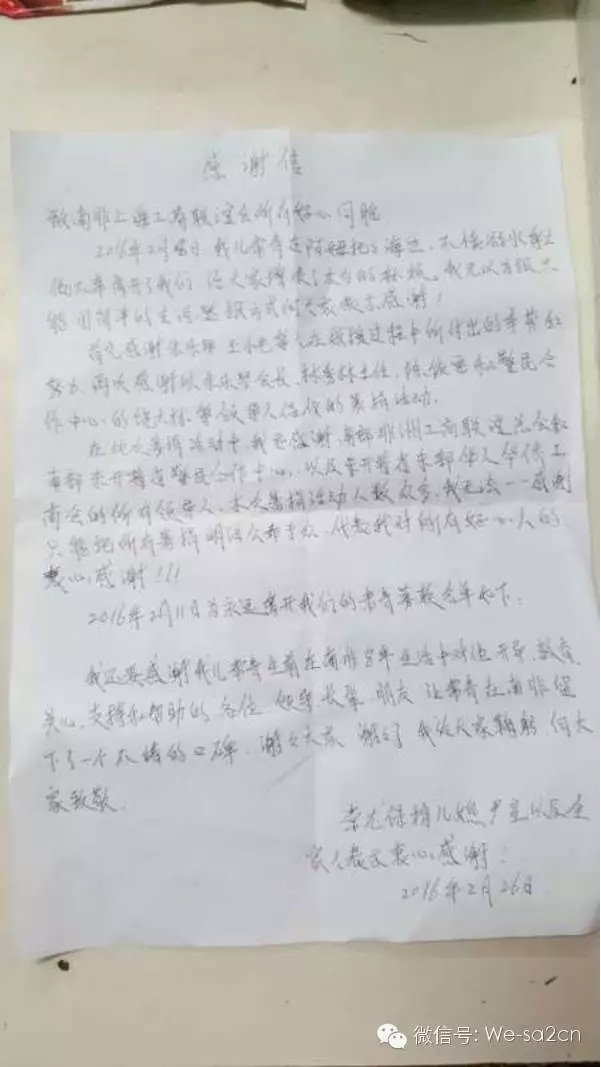 感谢信
致南非上海工商联谊会所有好心同胞
2016年2月 日,我儿常青在 海边,不慎溺水身亡
他不幸离开了我们,给大家带来了太多的麻烦。我无以为报只
能用简单的 方式向大家表示感谢!
首先感谢朱乐 王 等人在 过程中所付出的辛劳和
努力,再次感谢以朱乐琴会长、林 主任、陈 和警民合
作中心的 等效华人侨侨的募捐活动。
在此次募捐活动中,我还感谢南部非洲工商联谊总会和
南部 开普省警民合作中心,以及东开普省东部华人华侨工
商会的所有领导人,本次募捐活动人数众多,我无法一一感谢
只能把所有募捐明细公布于众,代表我对所有好心人的
衷心感谢!!!
2016年2月11日为永远离开我们的常青募款名单如下。
我还要感谢我儿常青生前在南非8年生活中对他开导、教育、
关心、支持和帮助的各位领导、长辈、朋友,让常青在南非留
下了一个不错的口碑,谢谢大家 谢谢 我给大家鞠躬,向大
家致敬。
常 保 儿媳 尹 以及全
家人表示衷心感谢!
2016年2月26日
微信号: We-sa2cn